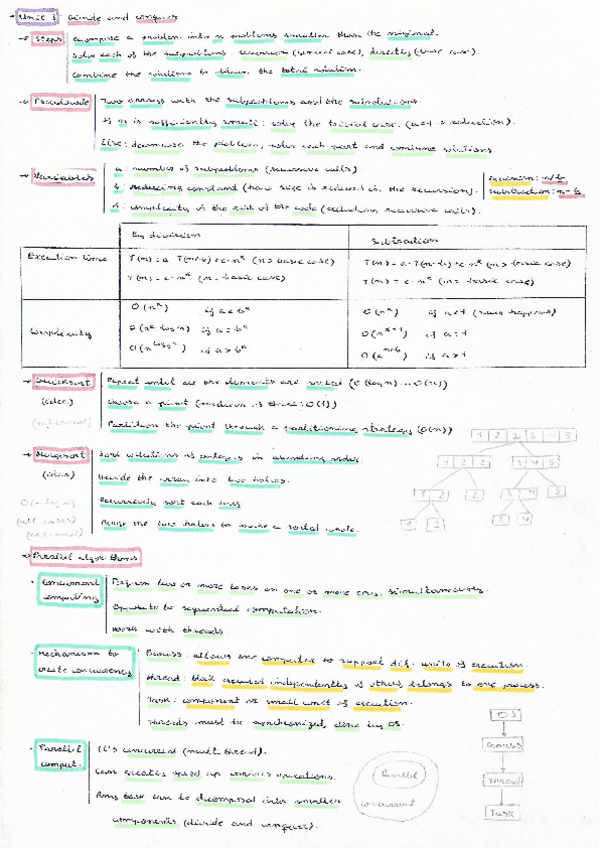 Unit 3: Divide and conquer
Steps
Decompose a problem into n problems smaller than the original.
Solve each of the subproblems: recursion (general case), directly (base case)
Combine the solutions to obtain the total solution.
Pseudocode
Two arrays with the subproblems and the subsolutions.
If n is sufficiently small: solve the trivial case.
Else: decompose the problem, solve each part and combine solutions
Variables
a: number of subproblems (recursive calls)
b: reducing constant (how size is reduced in the recursion).
Division: n/b
Subtraction: n-b
k: complexity of the rest of the code (excluding recursive calls).
By division
Subtraction
Execution time
T(n) = a·T(n/b) + c·n^k (n > basic case)
T(n) = a·T(n-b) + c·n^k (n > basic case)
T(n) = c·n^k (n = basic case)
T(n) = c·n^k (n = basic case)
Complexity
O(n^k) if a < b^k
O(n^k) if a < 1 (never happens)
O(n^k · log n) if a = b^k
O(n^k+1) if a = 1
if a > b^k
O(a^n/b) if a > 1
Quicksort
Repeat until all the elements are sorted (O(log n) ... O(n))
Choose a pivot (median of three: O(1))
Partition the pivot through a partitioning strategy (O(n))
Mergesort
Sort collections of integers in ascending order.
O(n·log n)
Divide the array into two halves.
(all cases)
Recursively sort each half
(external)
Merge the two halves to make a sorted whole.
Parallel algorithms
Concurrent computing
Perform two or more tasks on one or more cores, simultaneously.
Opposite to sequential computation.
Work with threads
Mechanisms to create concurrency
Process: allows one computer to support dif. units of execution.
Thread: block executed independently of others, belongs to one process.
Task: component or small unit of execution.
Threads must be synchronized, done by OS.
OS
Process
Thread
Task
Parallel comput.
It's concurrent (multithread).
Can greatly speed up various operations.
Any task can be decomposed into smaller
components (divide and conquer).
Parallel
Concurrent